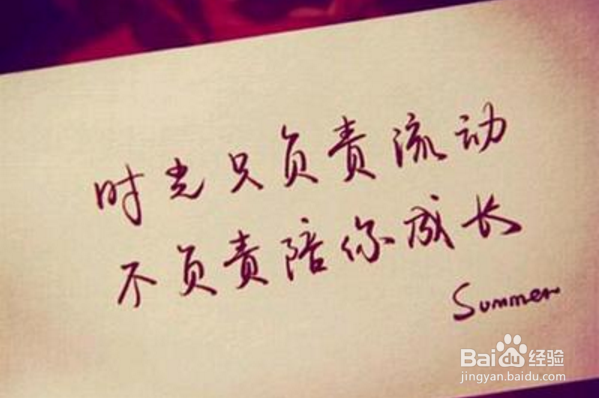 时光只负责流动
不负责陪你成长
Summer
Baidu经验
jingyan.baidu.com